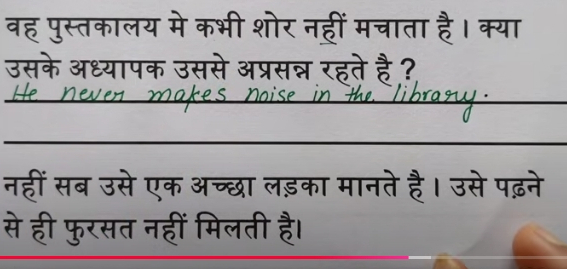 वह पुस्तकालय मे कभी शोर नहीं मचाता है । क्या
उसके अध्यापक उससे अप्रसन्न रहते है ?
He never makes noise in the library.
नहीं सब उसे एक अच्छा लड़का मानते है । उसे पढ़ने
से ही फुरसत नहीं मिलती है।